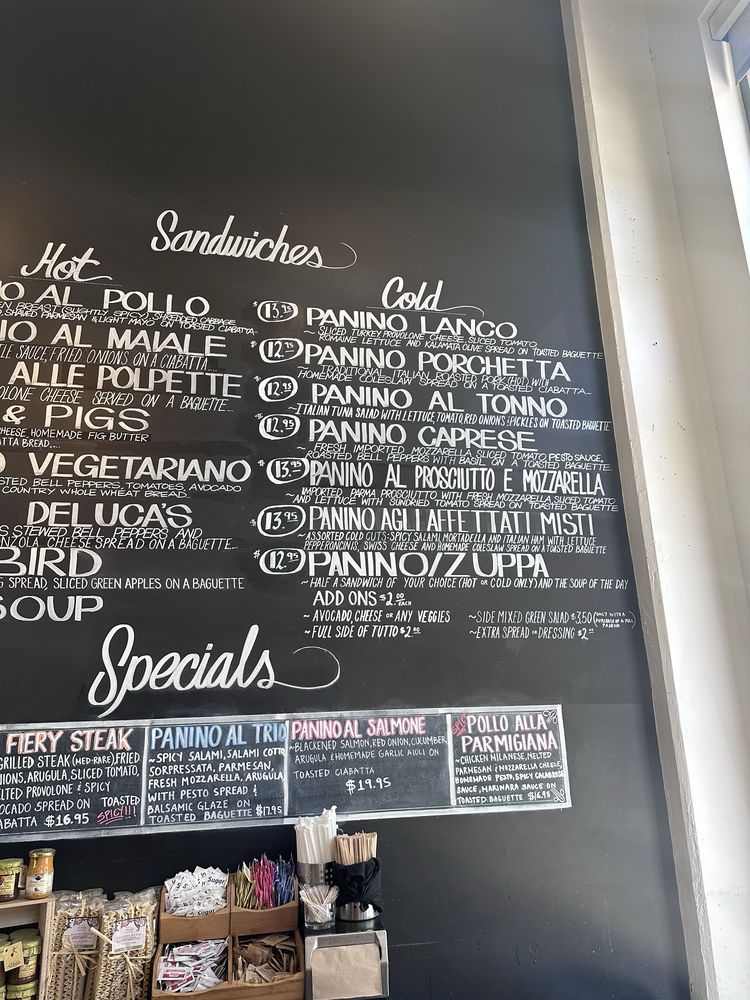 Sandwiches
Hot
O AL POLLO
EN BREAST (SLIGHTLY SPICY), SHREDDED CABBAGE
SHAVED PARMESAN & LIGHT MAYO ON TOASTED CIABATTA~
IO AL MAIALE
TLE SAUCE, FRIED ONIONS ON A CIABATTA...
ALLE POLPETTE
OLONE CHEESE SERVED ON A BAGUETTE...
& PIGS
CHEESE HOMEMADE FIG BUTTER
ATTA BREAD....
O VEGETARIANO
STED BELL PEPPERS, TOMATOES, AVOCADO
COUNTRY WHOLE WHEAT BREAD...
DELUCA'S
S STEWED BELL PEPPERS AND
NZOLA CHEESE SPREAD ON A BAGUETTE...
BIRD
G SPREAD, SLICED GREEN APPLES ON A BAGUETTE
SOUP
Cold
$13.95 PANINO LANCO
~SLICED TURKEY, PROVOLONE CHEESE, SLICED TOMATO,
ROMAINE LETTUCE AND KALAMATA OLIVE SPREAD ON TOASTED BAGUETTE
PANINO PORCHETTA
~TRADITIONAL ITALIAN ROASTED PORK (HOT) WITH
HOMEMADE COLESLAW SPREAD ON A TOASTED CIABATTA...
$12.95 PANINO AL TONNO
~ITALIAN TUNA SALAD WITH LETTUCE, TOMATO, RED ONIONS & PICKLES ON TOASTED BAGUETTE
$12.95 PANINO CAPRESE
~FRESH IMPORTED MOZZARELLA, SLICED TOMATO PESTO SAUCE,
ROASTED BELL PEPPERS WITH BASIL ON A TOASTED BAGUETTE.
$13.95 PANINO AL PROSCIUTTO E MOZZARELLA
~IMPORTED PARMA PROSCIUTTO WITH FRESH MOZZARELLA, SLICED TOMATO
AND LETTUCE WITH SUNDRIED TOMATO SPREAD ON TOASTED BAGUETTE
$13.95 PANINO AGLI AFFETTATI MISTI
~ASSORTED COLD CUTS: SPICY SALAMI, MORTADELLA AND ITALIAN HAM WITH LETTUCE,
PEPPERONCINIS, SWISS CHEESE AND HOMEMADE COLESLAW SPREAD ON A TOASTED BAGUETTE
$12.95 PANINO/ZUPPA
~HALF A SANDWICH OF YOUR CHOICE (HOT OR COLD ONLY) AND THE SOUP OF THE DAY
ADD ONS $2.00 EACH
~AVOCADO, CHEESE OR ANY VEGGIES
~FULL SIDE OF TUTTO $2.00
~SIDE MIXED GREEN SALAD $3.50 (ONLY WITH A PURCHASE OF A FULL PANINO)
~EXTRA SPREAD OR DRESSING $2.00
Specials
FIERY STEAK
GRILLED STEAK (MED-RARE), FRIED
ONIONS, ARUGULA, SLICED TOMATO,
MELTED PROVOLONE & SPICY
OCADO SPREAD ON TOASTED
ABATTA $16.95 SPICY!!!
PANINO AL TRIO
~SPICY SALAMI, SALAMI COTTO
SOPRESSATA, PARMESAN,
FRESH MOZZARELLA, ARUGULA,
WITH PESTO SPREAD &
BALSAMIC GLAZE ON
TOASTED BAGUETTE $17.95
PANINO AL SALMONE
~BLACKENED SALMON, RED ONION, CUCUMBER
ARUGULA & HOMEMADE GARLIC AIOLI ON
TOASTED CIABATTA
$19.95
POLLO ALLA
PARMIGIANA
~CHICKEN MILANESE, MELTED
PARMESAN & MOZZARELLA CHEESE,
HOMEMADE PESTO, SPICY CALABRESE
SAUCE, MARINARA SAUCE ON
TOASTED BAGUETTE $16.95
Sugar